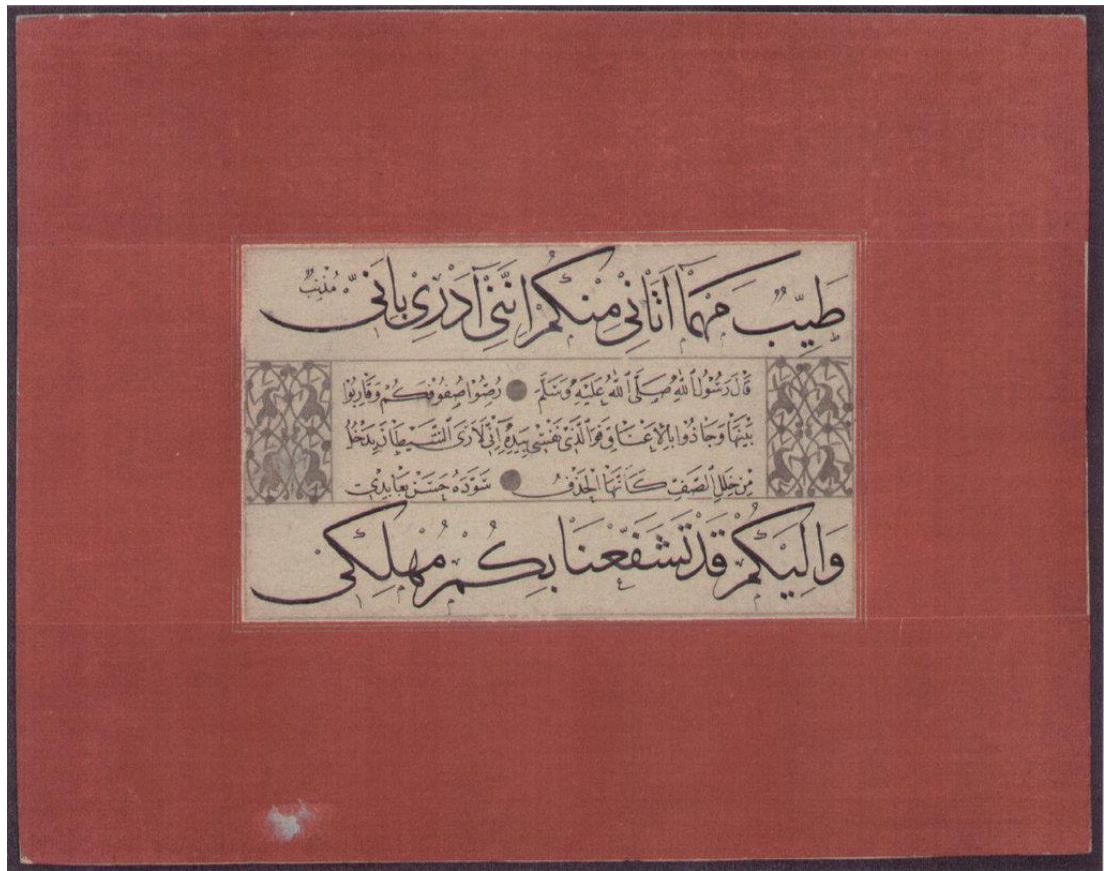 طَيِّبٌ مَهْمَا اَتَانِي مِنْكُمْ اِنَّنِي اَدْرِي بِاَنِّي مُذْنِبٌ
قَالَ رَسُولُ اللهِ صَلَّى اللهُ عَلَيْهِ وَسَلَّمَ رُصُّوا صُفُوفَكُمْ وَقَارِبُوا
بَيْنَهَا وَحَاذُوا بِالْاَعْنَاقِ فَوَالَّذِي نَفْسِي بِيَدِهِ اِنِّي لَاَرَى الشَّيْطَانَ يَدْخُلُ
مِنْ خَلَلِ الصَّفِّ كَاَنَّهَا الْحَذَفُ سَوَّدَهُ حَسَنْ عَابِدِي
وَاِلَيْكُمْ قَدْ تَشَفَّعْنَا بِكُمْ مُهْلِكِي